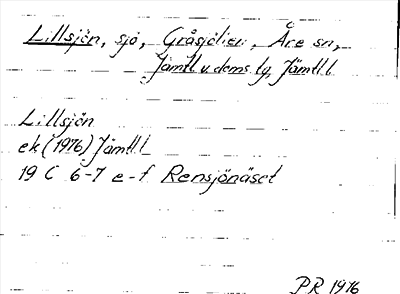 Lillsjön, sjö, Gråsjölien, Åre sn,
Jämtl. v. doms. lg, Jämtl. l
Lillsjön
ek (1976) Jämtl. l
19 C 6-7 e-f Rensjönäset
P.R 1976